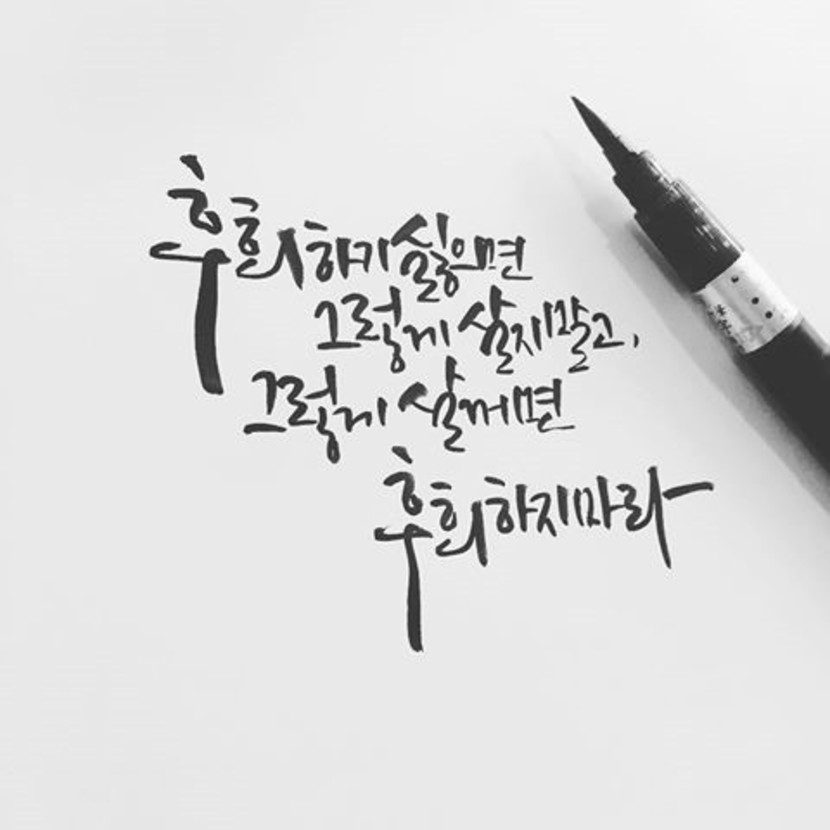 후회하기싫으면
그렇게 살지말고,
그렇게 살꺼면
후회하지마라